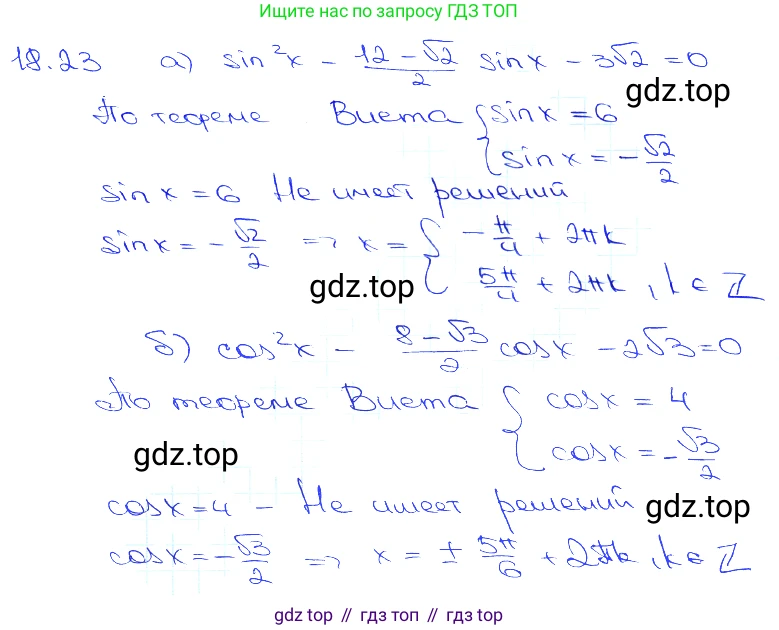 Ищите нас по запросу ГДЗ ТОП
18.23 а) sin²x - (12-√2)/2 sinx - 3√2 = 0
gdz.top
По теореме Виета { sinx = 6
sinx = -√2/2
sinx = 6 Не имеет решений
sinx = -√2/2 => x = { -π/4 + 2πk
5π/4 + 2πk, k ∈ Z
gdz.top
б) cos²x - (8-√3)/2 cosx - 2√3 = 0
По теореме Виета { cosx = 4
cosx = -√3/2
gdz.top
cosx = 4 - Не имеет решений
gdz.top
cosx = -√3/2 => x = ± 5π/6 + 2πk, k ∈ Z
gdz top // гдз топ // gdz.top